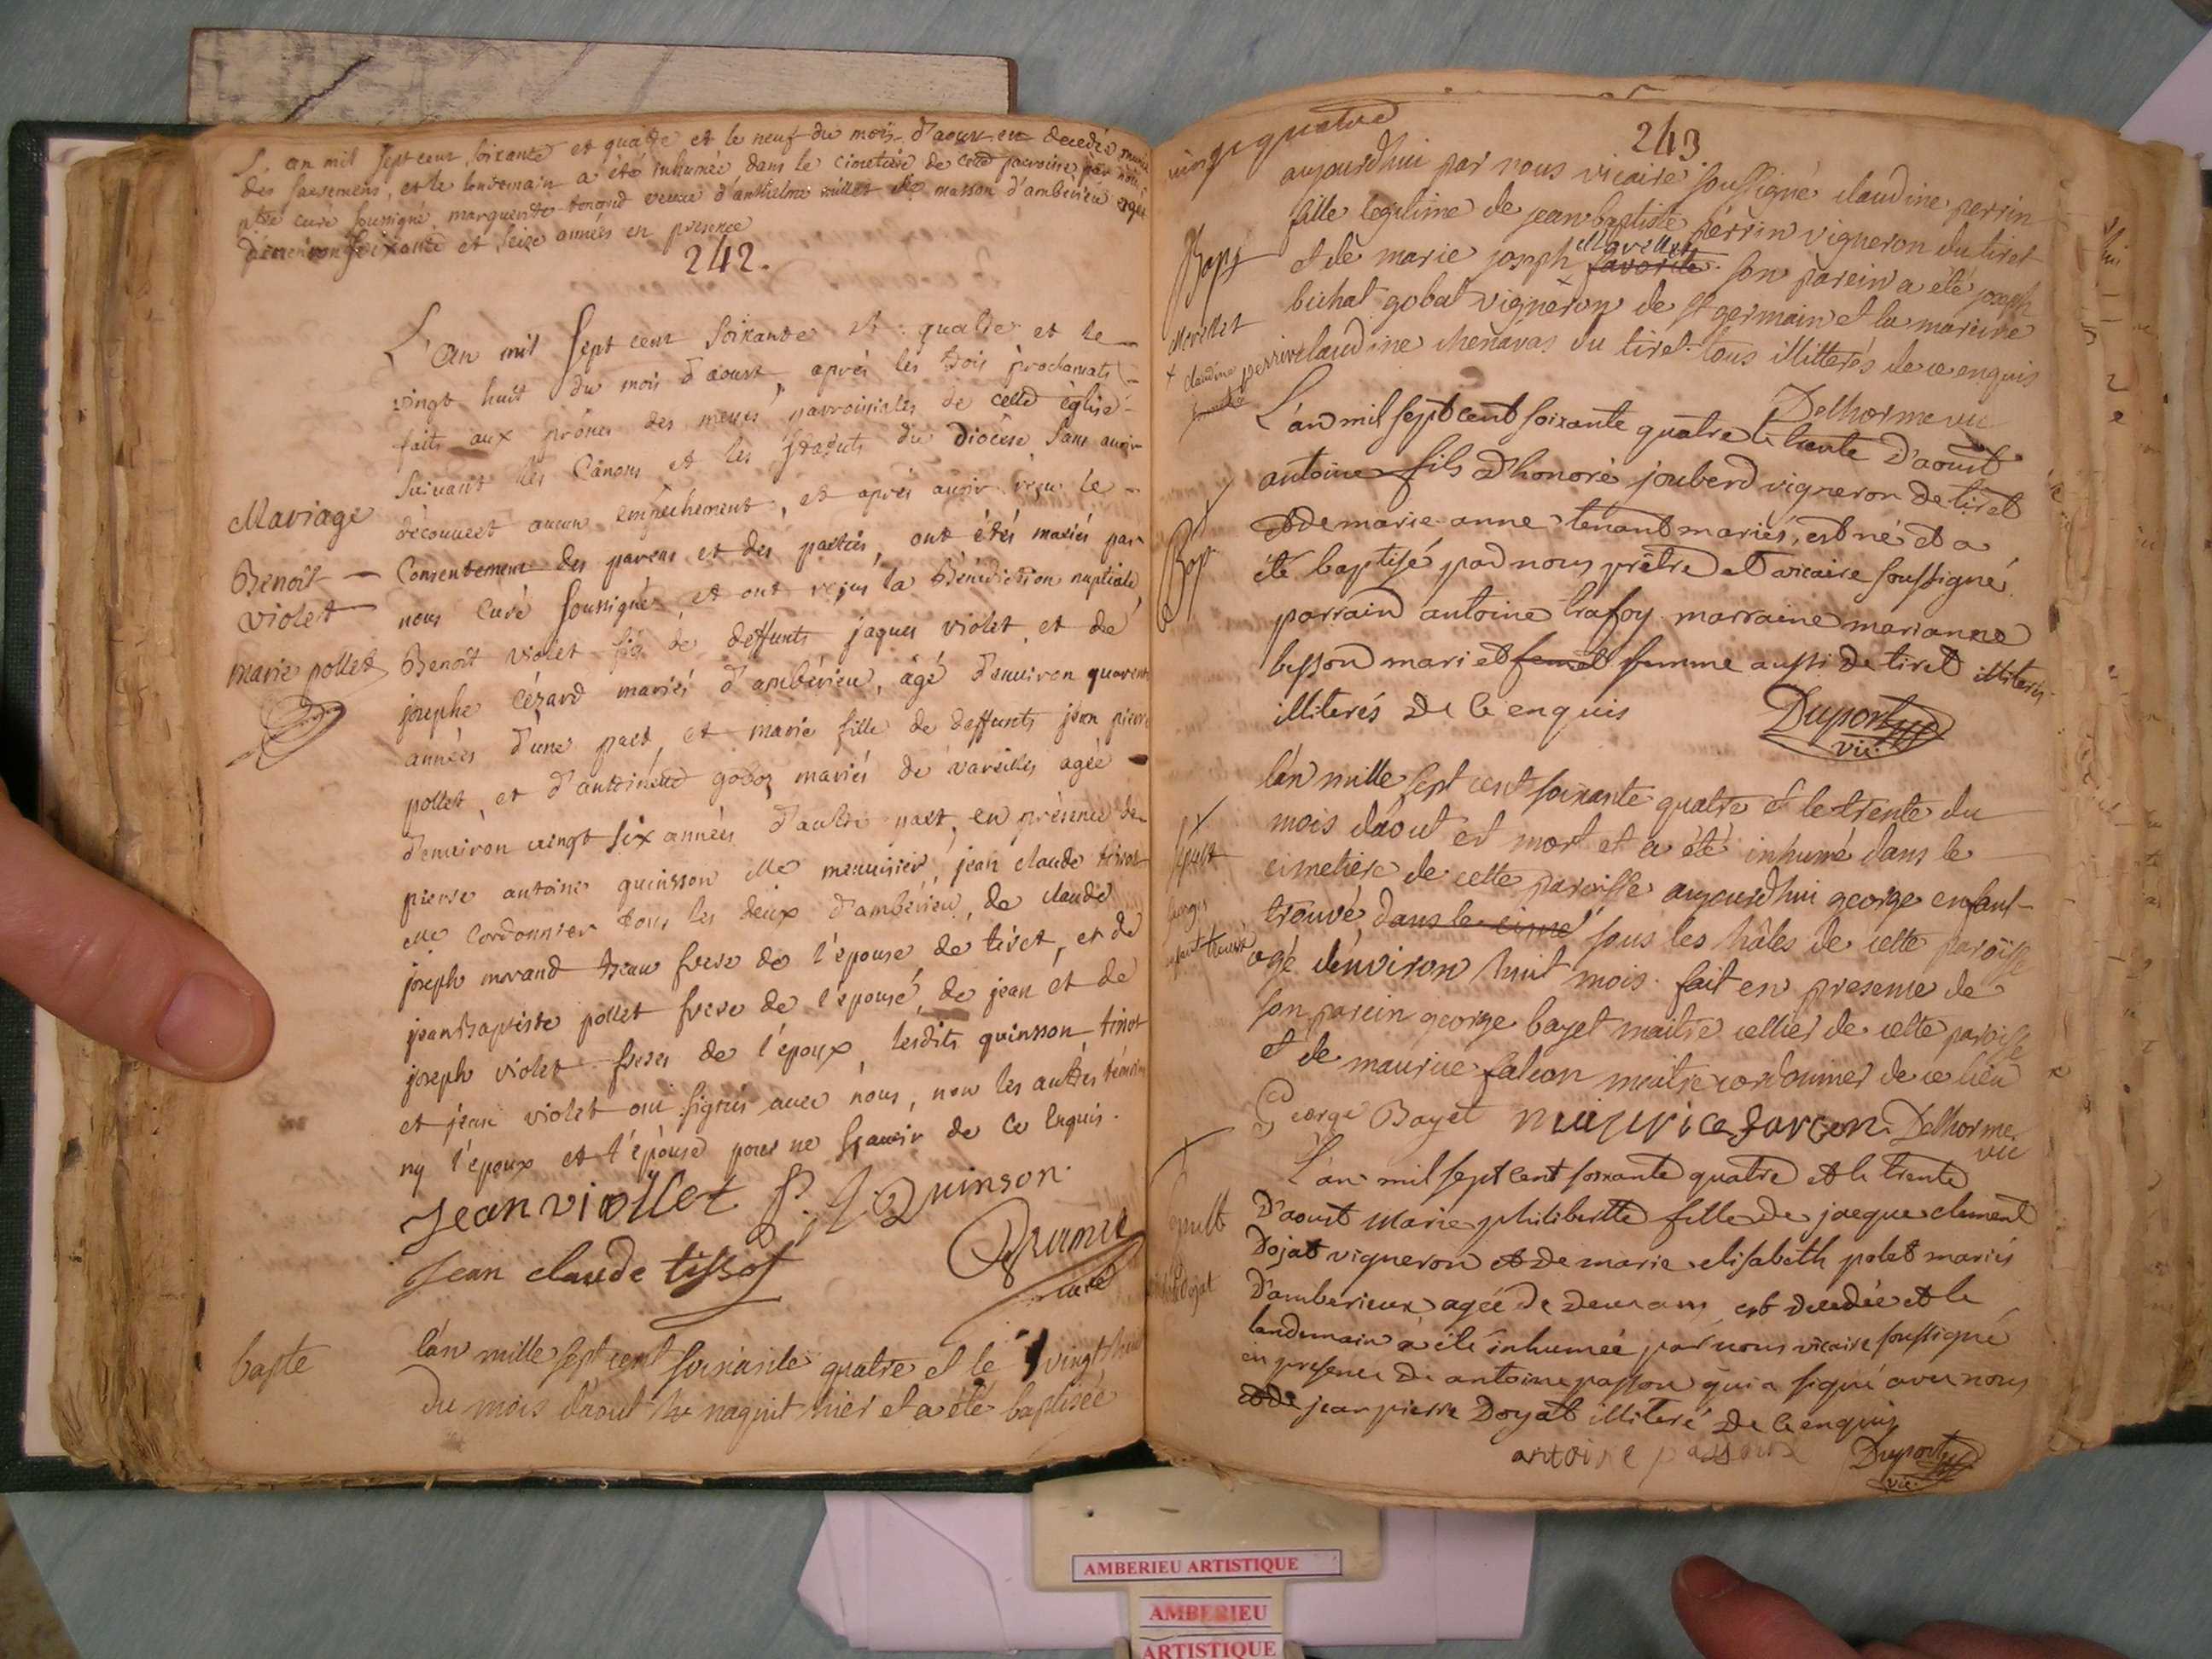 L'an mil sept cent soixante et quatre et le neuf du mois d'aoust est decedée munie
des sacremens, et le lendemain a été inhumée dans le cimetière de cette parroisse par nous
ptre curé soussigné marguerite veuve d'anthelme millet me masson d'ambérieu agée
d'environ soixante et seize années en presence
242.
L'an mil sept cent soixante et quatre et le
vingt huit du mois d'aoust, après les trois proclamats
faits aux prônes des messes parroissiales de cette église
suivant les Canons et les statuts du diocèse sans avoir
découvert aucun empêchement, et après avoir reçu le
Mariage
Consentement des parens et des parties, ont étés mariés par
Benoît
violet
nous Curé soussigné et ont reçus la Bénédiction nuptiale,
marie pollet
Benoît violet fils de deffunts jaques violet et de
josephe Cézard mariés d'ambérieu, âgé d'environ quarente
années d'une part, et marie fille de deffunts jean pierre
pollet, et d'antoinette godoz mariés de vareilles agée
d'environ vingt six années d'autre part, en présence de
pierre antoine quinsson me menuisier, jean claude tissot
me Cordonnier tous les deux d'ambérieu, de claude
joseph morand beau frere de l'épouse de tiret, et de
jean Baptiste pollet frere de l'épouse, de jean et de
joseph violet freres de l'époux, lesdits quinsson, tissot
et jean violet ont signés avec nous, non les autres témoins
ny l'epoux et l'épouse pour ne sçavoir de ce enquis.
Jean viollet P. A. Quinson
Jean claude tissot
curé
bapte
l'an mille sept cent soixante quatre et le vingt huit
du mois d'aout naquit hier et a été baptisée
243
vingt quatre
aujourdhui par nous vicaire soussigné claudine perrin
fille legitime de jean baptiste perrin vigneron du tiret
Bapt
et de marie joseph favorite son parein a été joseph
bichat gobat vigneron de st germain et la mareine
claudine perrin
claudine chenavas du tiret tous illitterés de ce enquis
Delhorme vic
L'an mil sept cent soixante quatre et le trente d'aoust
antoine fils d'honoré jouberd vigneron de tiret
Bap
et de marie anne tenant mariés, est né et a
été baptisé par nous prêtre et vicaire soussigné
parrain antoine trafoy marraine marianne
besson mari et femet femme aussi de tiret illiterés
illiterés de ce enquis
Duport
vic.
l'an mille sept cent soixante quatre et le trente du
mois d'aout est mort et a été inhumé dans le
sepult
cimetiere de cette paroisse aujourdhui george enfant
trouvé dans le cime sous les hâles de cette paroisse
enfant trouvé
agé d'environ huit mois. fait en presence de
son parein george bayet maitre cellier de cette paroisse
et de maurice falcon maitre cordonnier de ce lieu
George Bayet Maurice farcon Delhorme
vic
L'an mil sept cent soixante quatre et le trente
d'aoust Marie philiberte fille de jacque clement
Dojat vigneron et de marie elisabeth polet mariés
Dojat
d'amberieux agée de deux ans est decedée et le
lendemain a été inhumée par nous vicaire soussigné
en presence de antoine passou qui a signé avec nous
et de jean pierre Dojat illiteré de ce enquis
antoine Duport
vic.
AMBERIEU ARTISTIQUE
AMBERIEU
ARTISTIQUE